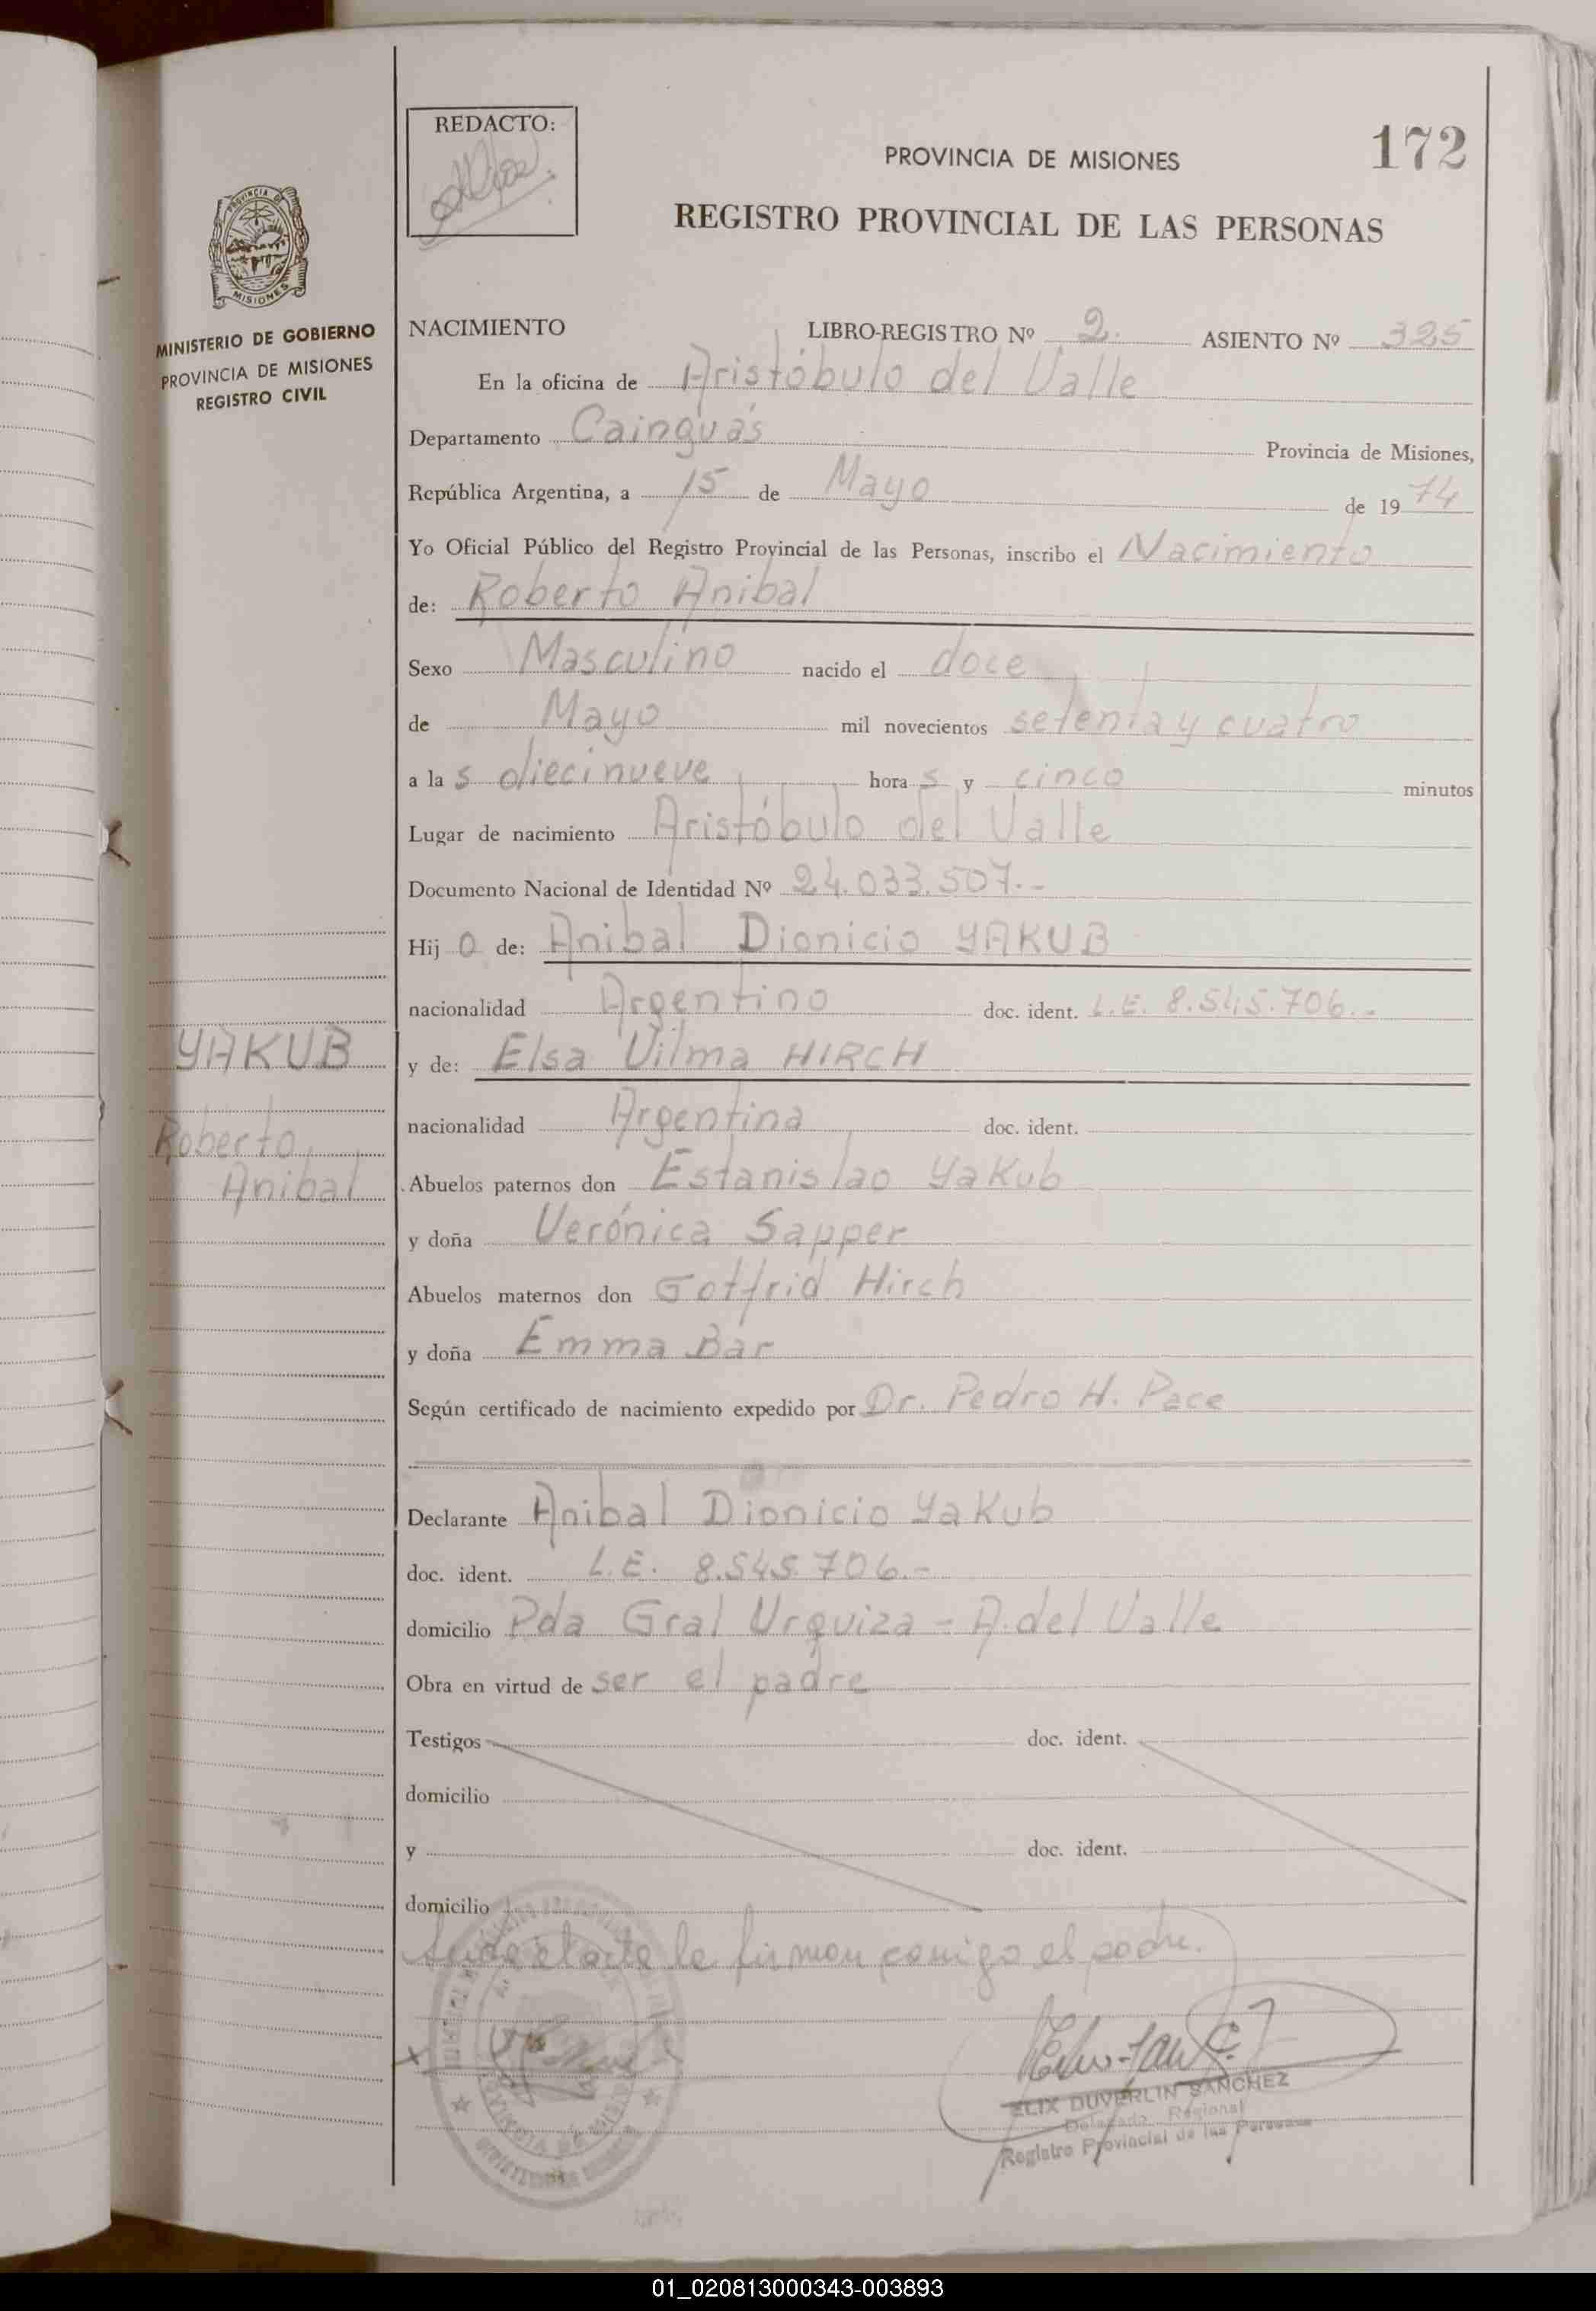 REDACTO:
PROVINCIA DE MISIONES
172
REGISTRO PROVINCIAL DE LAS PERSONAS
PROVINCIA DE
MISIONES
MINISTERIO DE GOBIERNO
PROVINCIA DE MISIONES
REGISTRO CIVIL
NACIMIENTO LIBRO-REGISTRO Nº 2. ASIENTO Nº 325
En la oficina de Aristóbulo del Valle
Departamento Cainguás Provincia de Misiones,
República Argentina, a 15 de Mayo de 1974
Yo Oficial Público del Registro Provincial de las Personas, inscribo el Nacimiento
de: Roberto Anibal
Sexo Masculino nacido el doce
de Mayo mil novecientos setenta y cuatro
a la s diecinueve hora s y cinco minutos
Lugar de nacimiento Aristóbulo del Valle
Documento Nacional de Identidad Nº 24.033.507.-
Hij o de: Anibal Dionicio YAKUB
nacionalidad Argentino doc. ident. L.E. 8.545.706.-
YAKUB
y de: Elsa Vilma HIRCH
nacionalidad Argentina doc. ident.
Roberto
Anibal
Abuelos paternos don Estanislao Yakub
y doña Verónica Sapper
Abuelos maternos don Gotfrid Hirch
y doña Emma Bar
Según certificado de nacimiento expedido por Dr. Pedro H. Pace
Declarante Anibal Dionicio Yakub
doc. ident. L.E. 8.545.706.-
domicilio Pda Gral Urquiza - A. del Valle
Obra en virtud de ser el padre
Testigos doc. ident.
domicilio
y doc. ident.
domicilio
el acta la firman conmigo el padre.
ELIX DUVERLIN SANCHEZ
Delegado Regional
Registro Provincial de las Personas
01_020813000343-003893